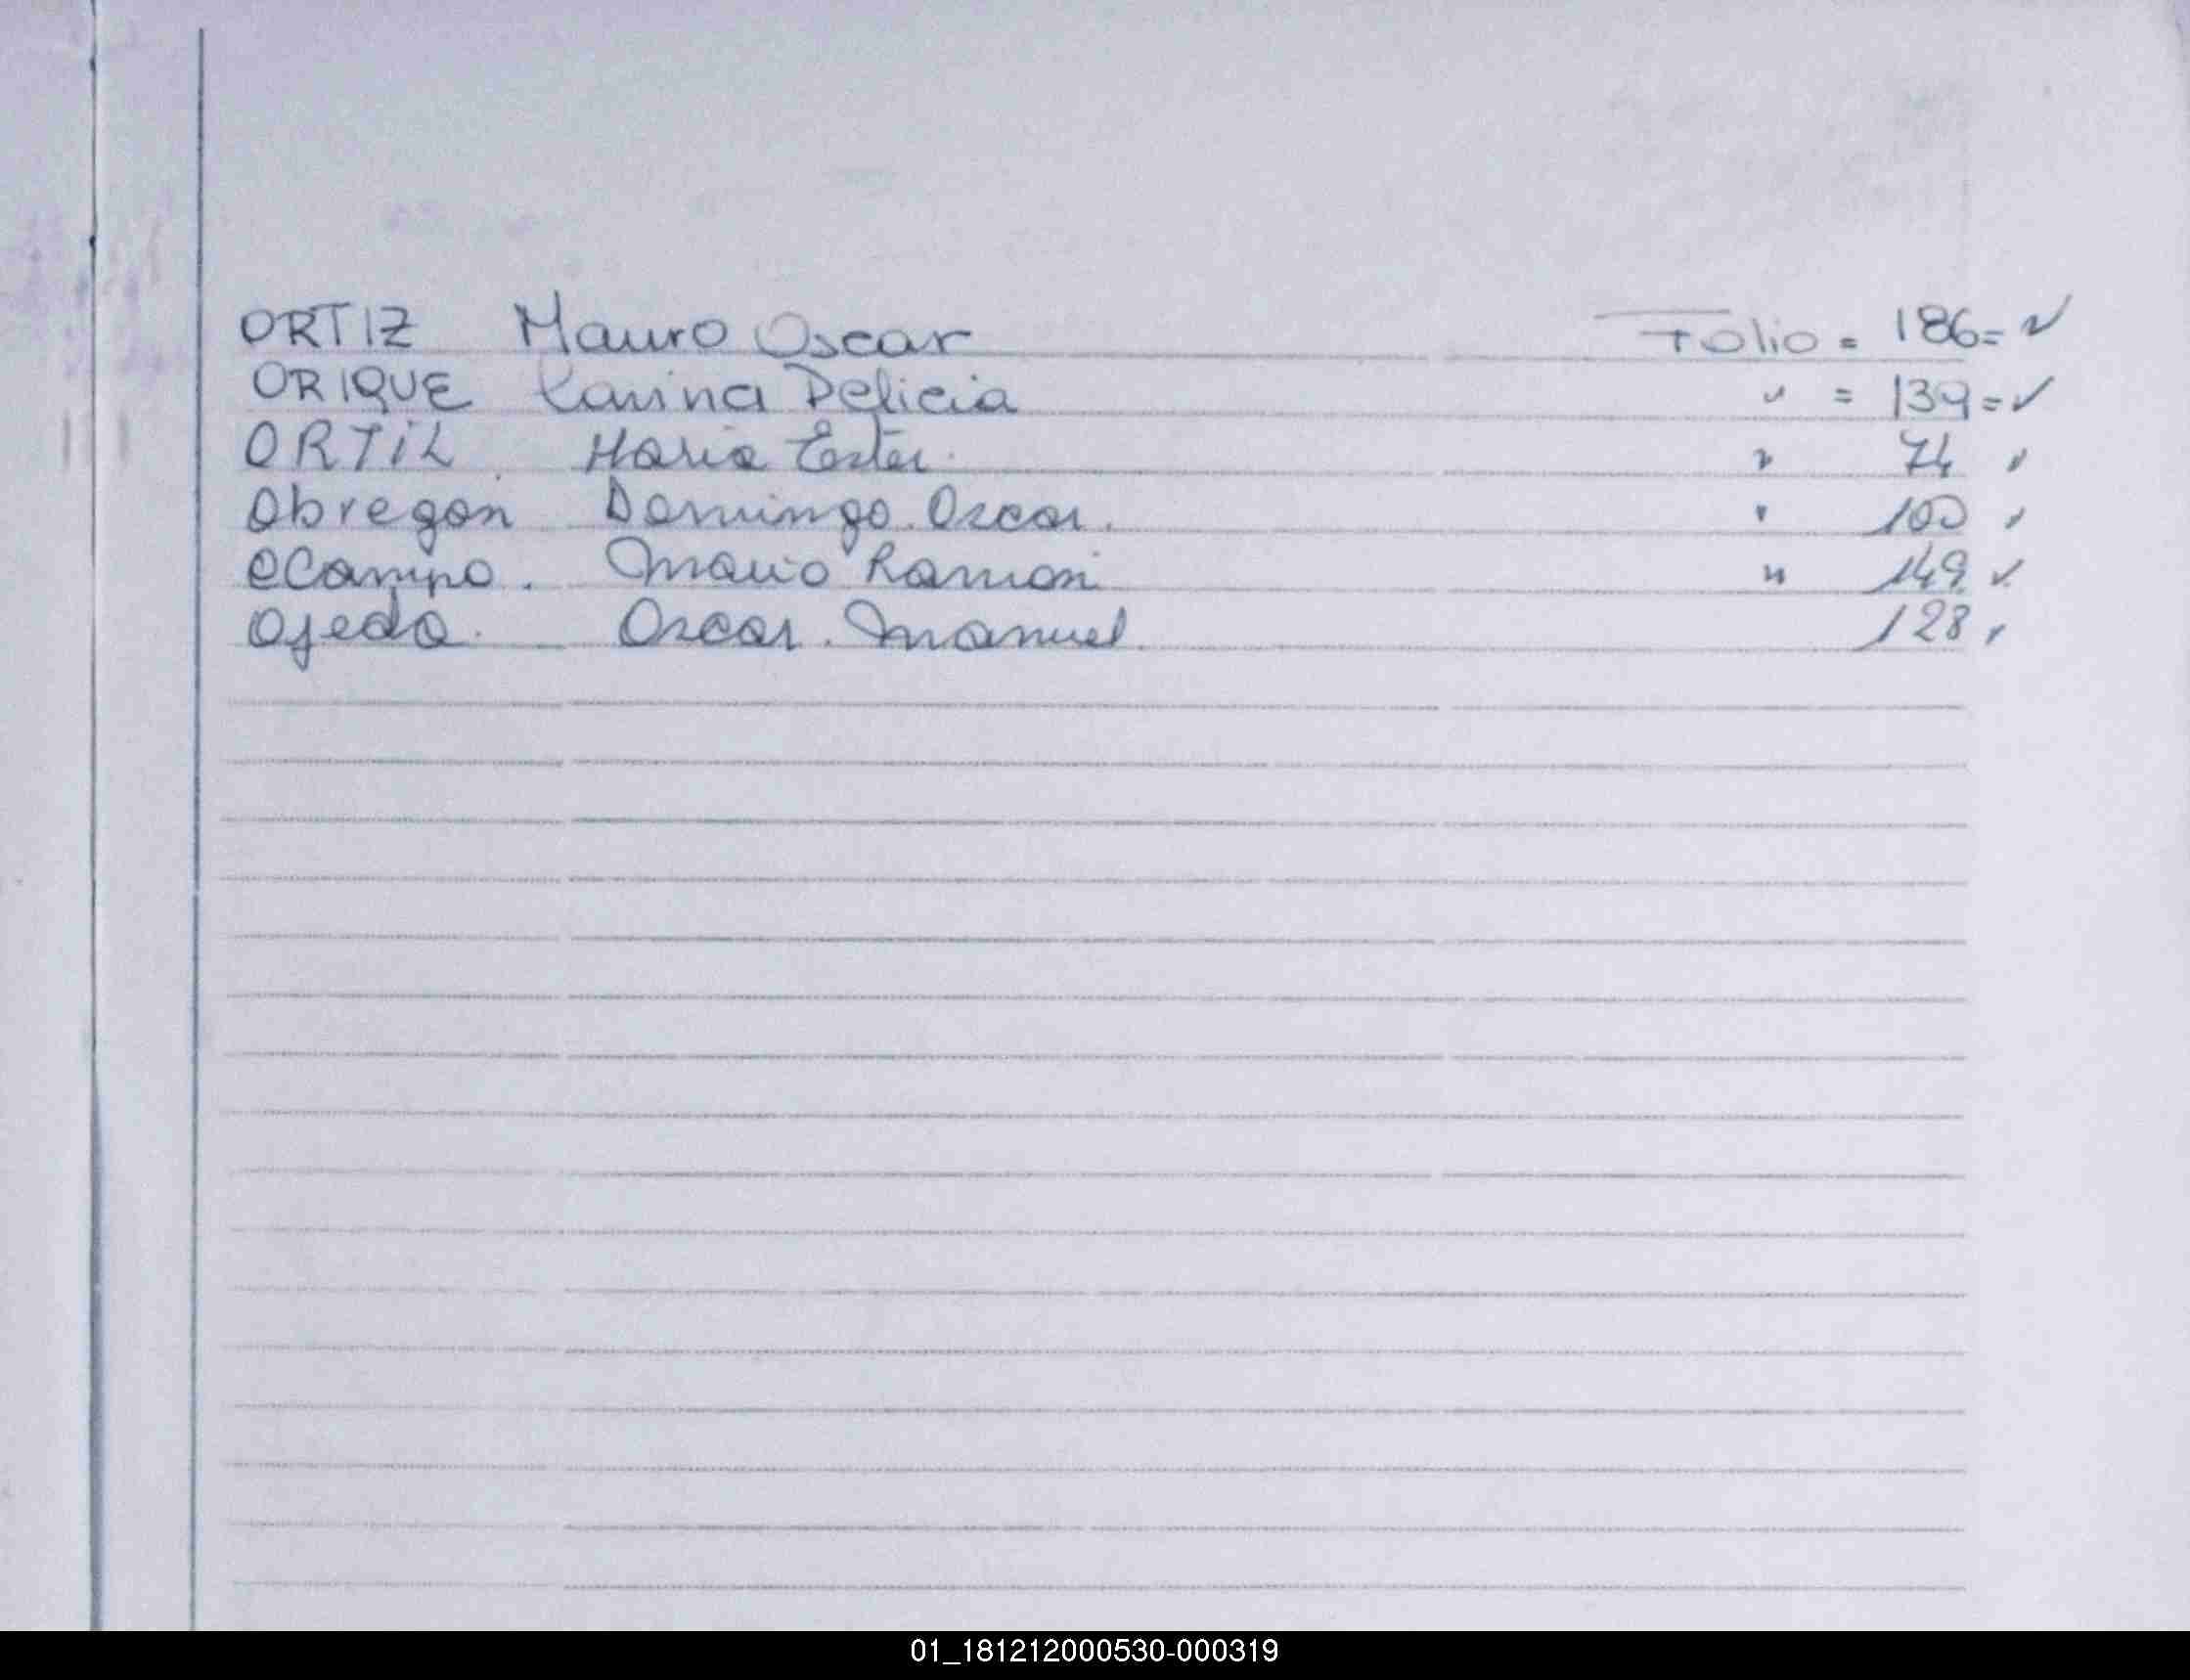 ORTIZ Mauro Oscar Folio = 186= ✓
ORIQUE Karina Delicia " = 139= ✓
ORTIZ Maria Ester. " 74 ✓
Obregon Domingo. Oscar. " 100 ✓
OCampo. Mario Ramon " 149. ✓
Ojeda. Oscar. Manuel. 128 ✓
01_181212000530-000319